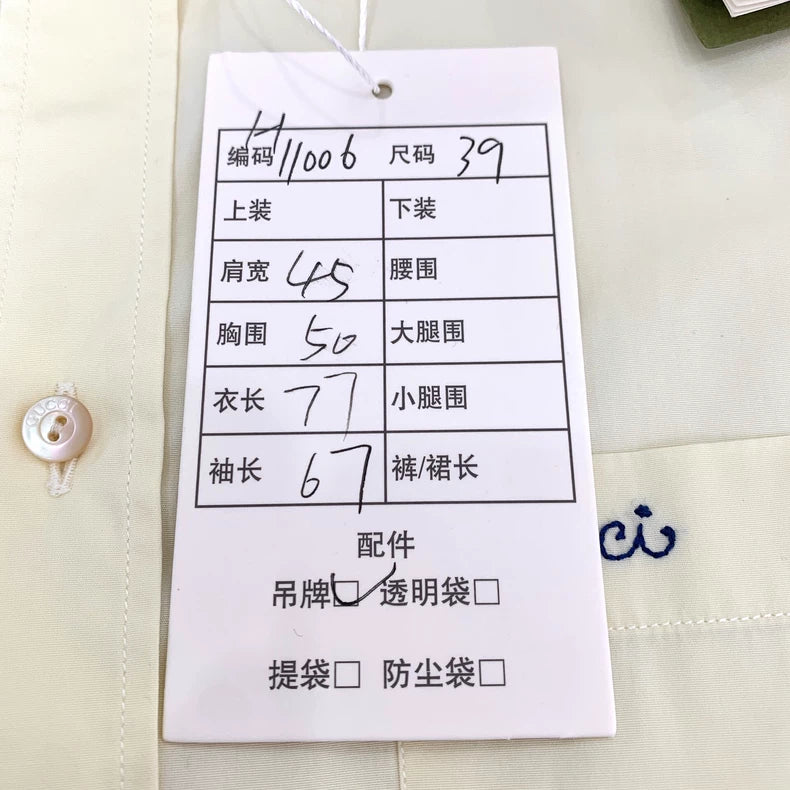 编码 H11006 尺码 39
上装 下装
肩宽 45 腰围
胸围 50 大腿围
衣长 77 小腿围
袖长 67 裤/裙长
配件
吊牌☑ 透明袋□
提袋□ 防尘袋□
GUCCI
ci